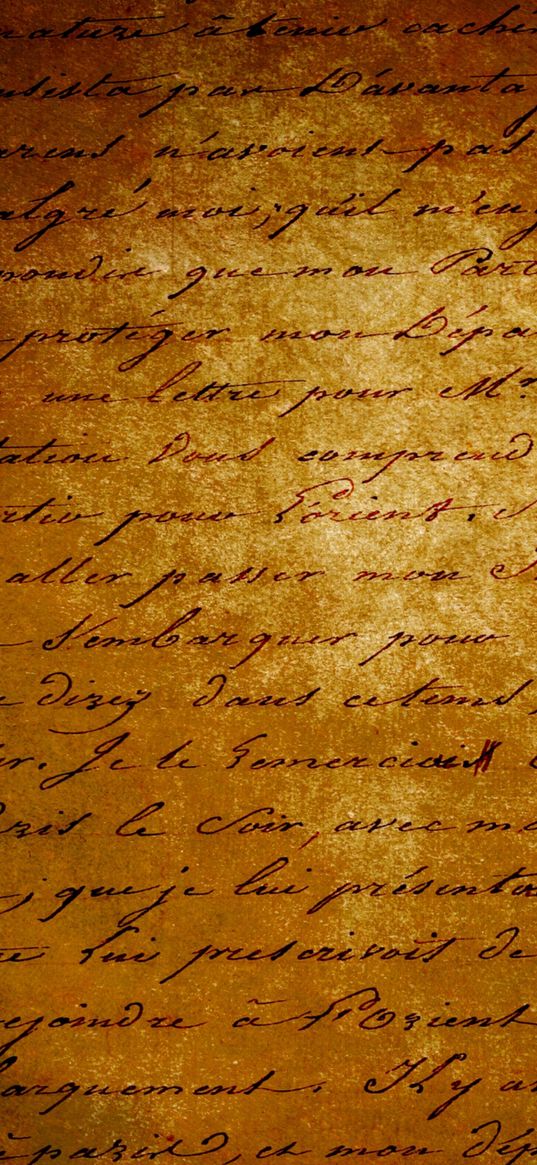 nature à tenir cache
insista par D'avanta
arens n'avoient pas
algré moi, qu'il m'en
pondis que mon Part
protéger mon Dépa
une lettre pour Mr
tation vous comprend
rtir pour Lorient.
aller passer mon
S'embarquer pour
dizez dans cetems,
ir. Je le Remerciais
ris le Soir, avec mo
, que je lui présenta
lui prescrivoit de
rejoindre à L'Orient
arquement. Il y a
épazit, et mon dép